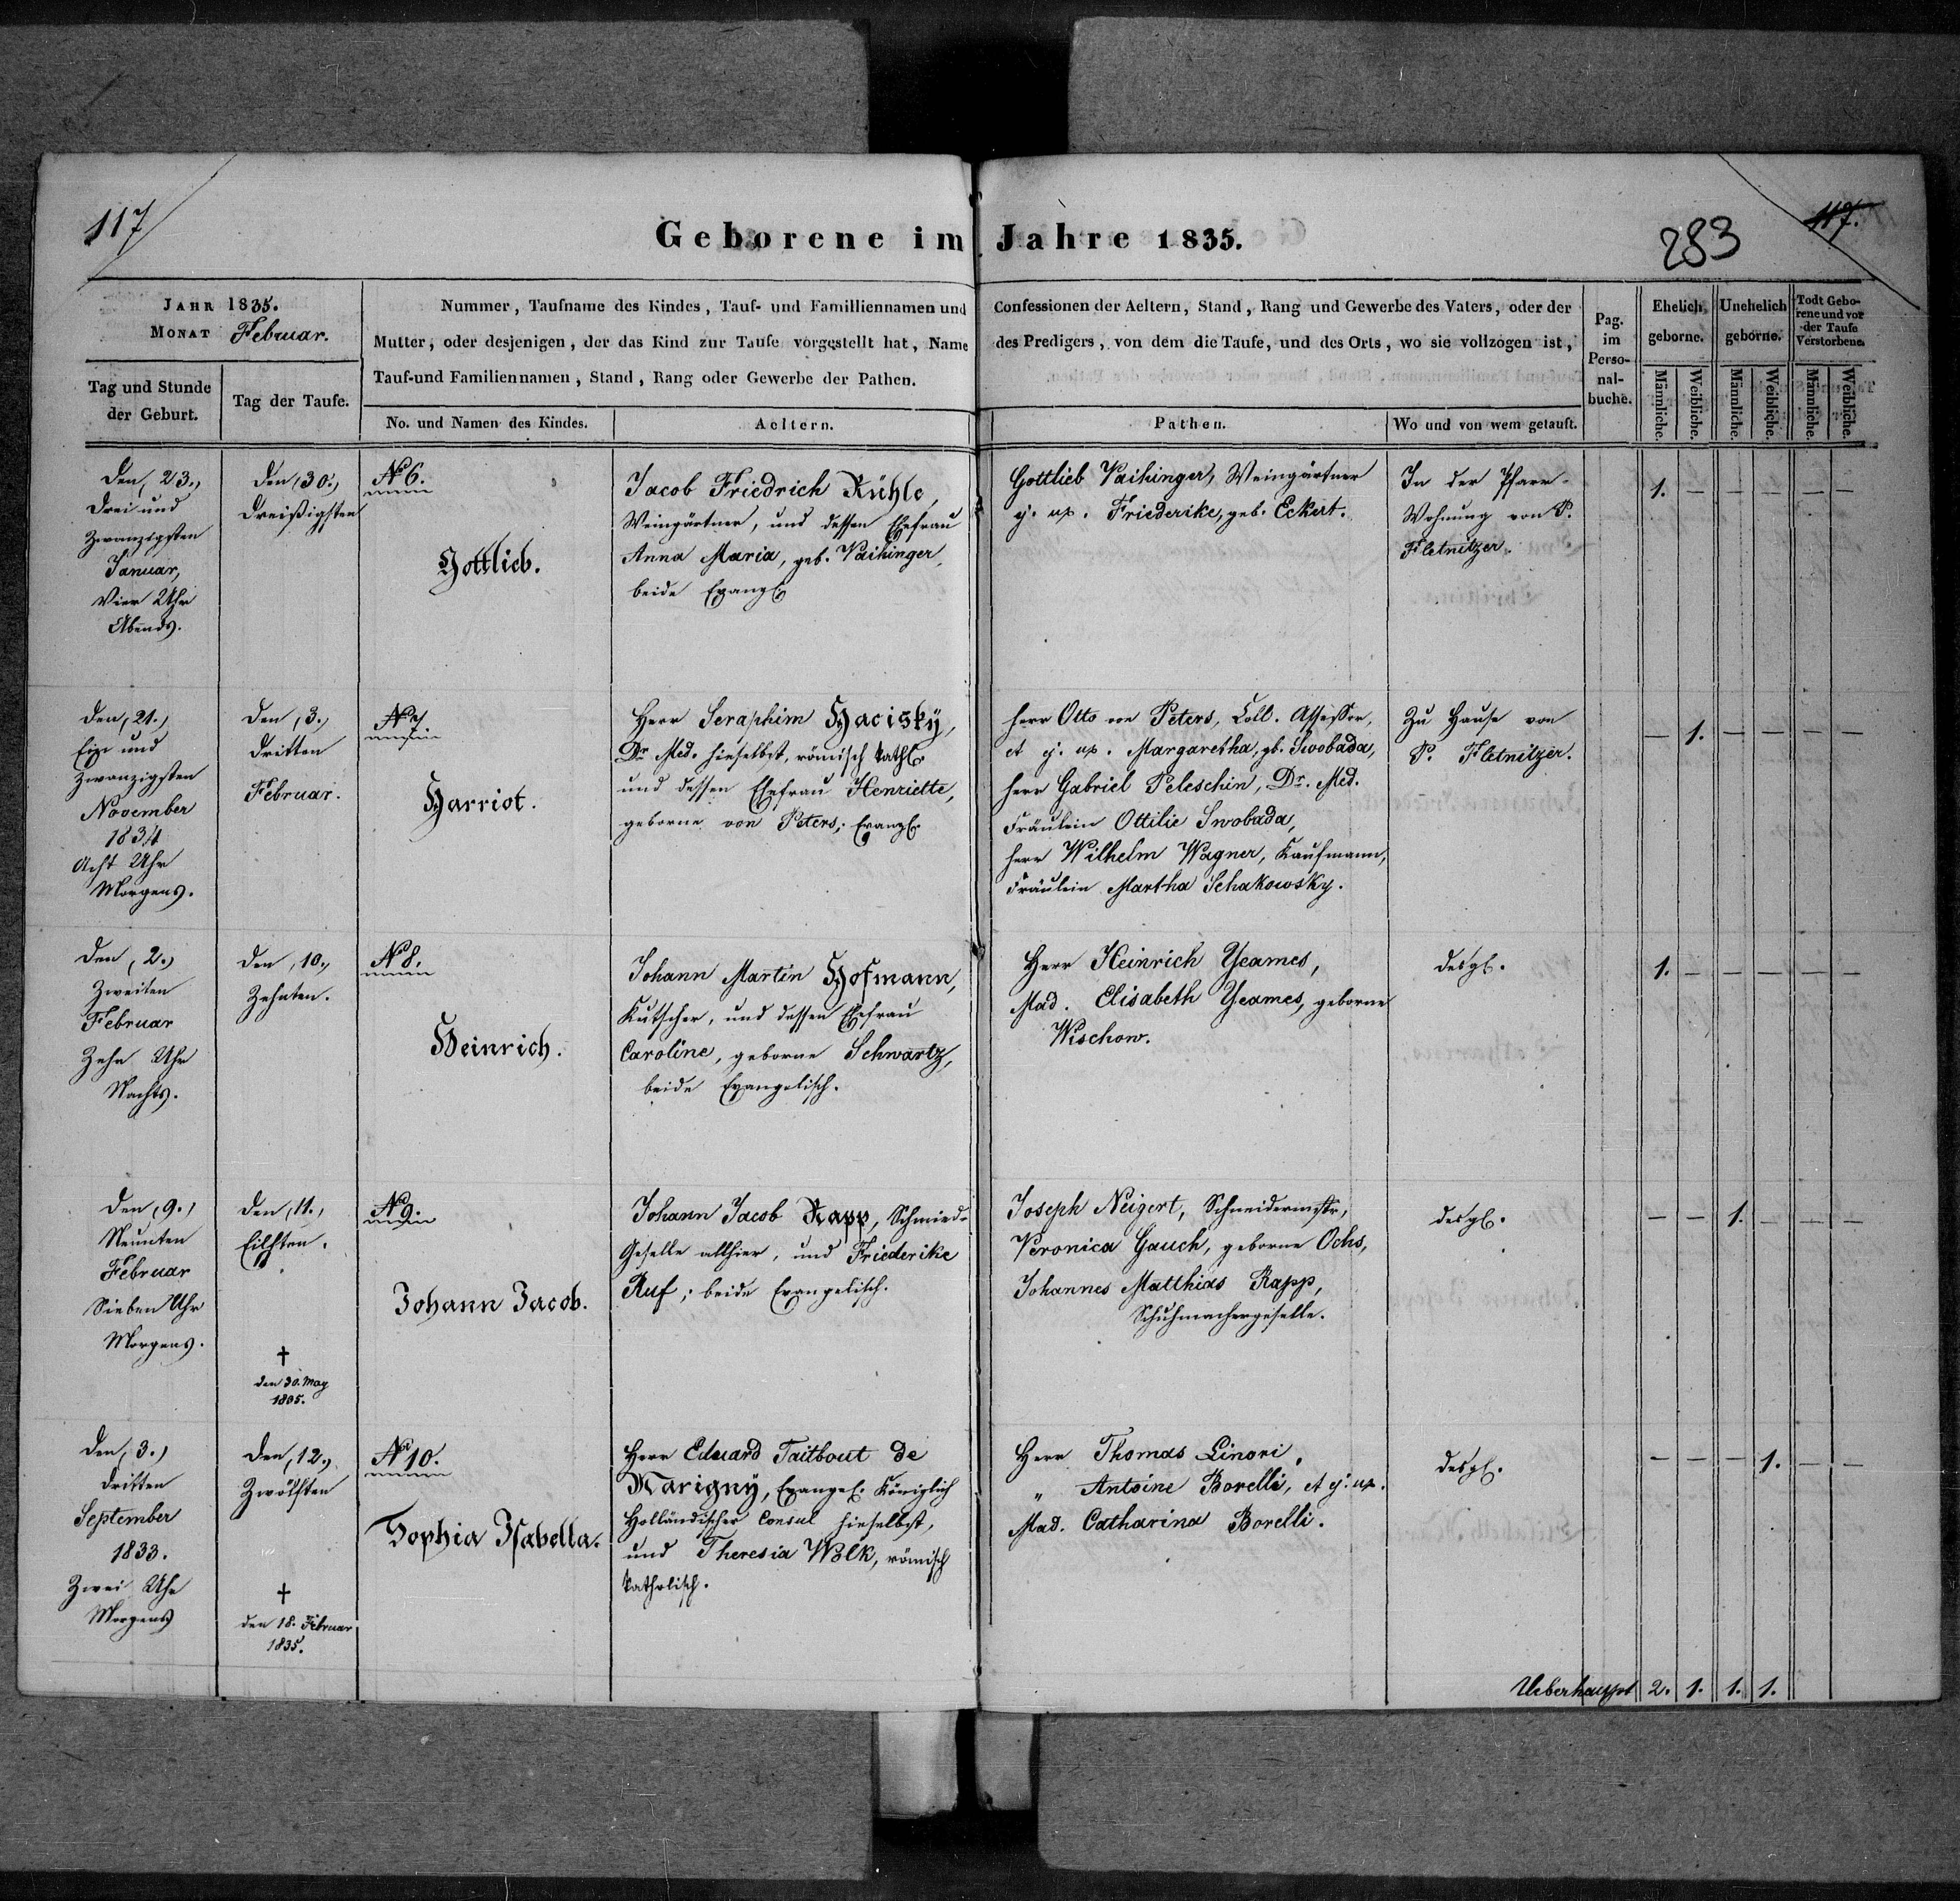 117
Geborene im Jahre 1835.
283
117.
JAHR 1835.
MONAT Februar.
Nummer, Taufname des Kindes, Tauf- und Familliennamen und
Mutter, oder desjenigen, der das Kind zur Taufe vorgestellt hat, Name
Tauf-und Familiennamen, Stand, Rang oder Gewerbe der Pathen.
Confessionen der Aeltern, Stand, Rang und Gewerbe des Vaters, oder der
des Predigers, von dem die Taufe, und des Orts, wo sie vollzogen ist,
Pag.
im
Perso-
nal-
buche.
Ehelich
geborne.
Unehelich
geborne.
Todt Gebo-
rene und vor
der Taufe
Verstorbene.
Tag und Stunde
der Geburt.
Tag der Taufe.
No. und Namen des Kindes.
Aeltern.
Pathen.
Wo und von wem getauft.
Männliche.
Weibliche.
Männliche.
Weibliche.
Männliche.
Weibliche.
Den, 23.,
Drei und
Zwanzigsten
Januar,
Vier Uhr
Abends.
Den, 30.,
Dreißigsten
No 6.
Gottlieb.
Jacob Friedrich Rühle,
Weingärtner, und dessen Ehefrau
Anna Maria, geb. Vaihinger,
beide Evangl.
Gottlieb Vaihinger, Weingärtner
ej. ux. Friederike, geb. Eckert.
In der Pfarr-
Wohnung von P.
Fletnitzer.
1. — — — — —
Den, 21.,
Ein und
Zwanzigsten
November
1834
Acht Uhr
Morgens.
Den, 3.,
Dritten
Februar.
No 7.
Harriot.
Herr Seraphim Hacisky,
Dr. Med. hieselbst, römisch kathl.
und dessen Ehefrau Henriette,
geborne von Peters, Evangl.
Herr Otto von Peters, Coll. Assessor,
et ej. ux. Margaretha, gb. Swobada,
Herr Gabriel Peleschin, Dr. Med.
Fräulein Ottilie Swobada,
Herr Wilhelm Wagner, Kaufmann,
Fräulein Martha Schakowsky.
Zu Hause von
P. Fletnitzer.
— 1. — — — —
Den, 2.,
Zweiten
Februar
Zehn Uhr
Nachts.
Den, 10.,
Zehnten.
No 8.
Heinrich.
Johann Martin Hofmann,
Kutscher, und dessen Ehefrau
Caroline, geborne Schwartz,
beide Evangelisch.
Herr Heinrich Yeames,
Mad. Elisabeth Yeames, geborne
Wischow.
desgl.
1. — — — — —
Den, 9.,
Neunten
Februar
Sieben Uhr
Morgens.
Den, 11.,
Eilften.
†
den 30. May
1835.
No 9.
Johann Jacob.
Johann Jacob Rapp, Schmied-
Geselle allhier, und Friederike
Ruf; beide Evangelisch.
Joseph Neigert, Schneidermstr,
Veronica Gauch, geborne Ochs,
Johannes Matthias Rapp,
Schuhmachergeselle.
desgl.
— — 1. — — —
Den, 3.,
Dritten
September
1833.
Zwei Uhr
Morgens
Den, 12.,
Zwölften
†
den 18. Februar
1835.
No 10.
Sophia Isabella.
Herr Eduard Taitbout de
Marigny, Evangel. Königlich
Holländischer Consul hieselbst,
und Theresia Wolk, römisch
katholisch.
Herr Thomas Linori,
„ Antoine Borelli, et ej. ux.
Mad. Catharina Borelli.
desgl.
— — — 1. — —
Ueberhaupt 2. 1. 1. 1.